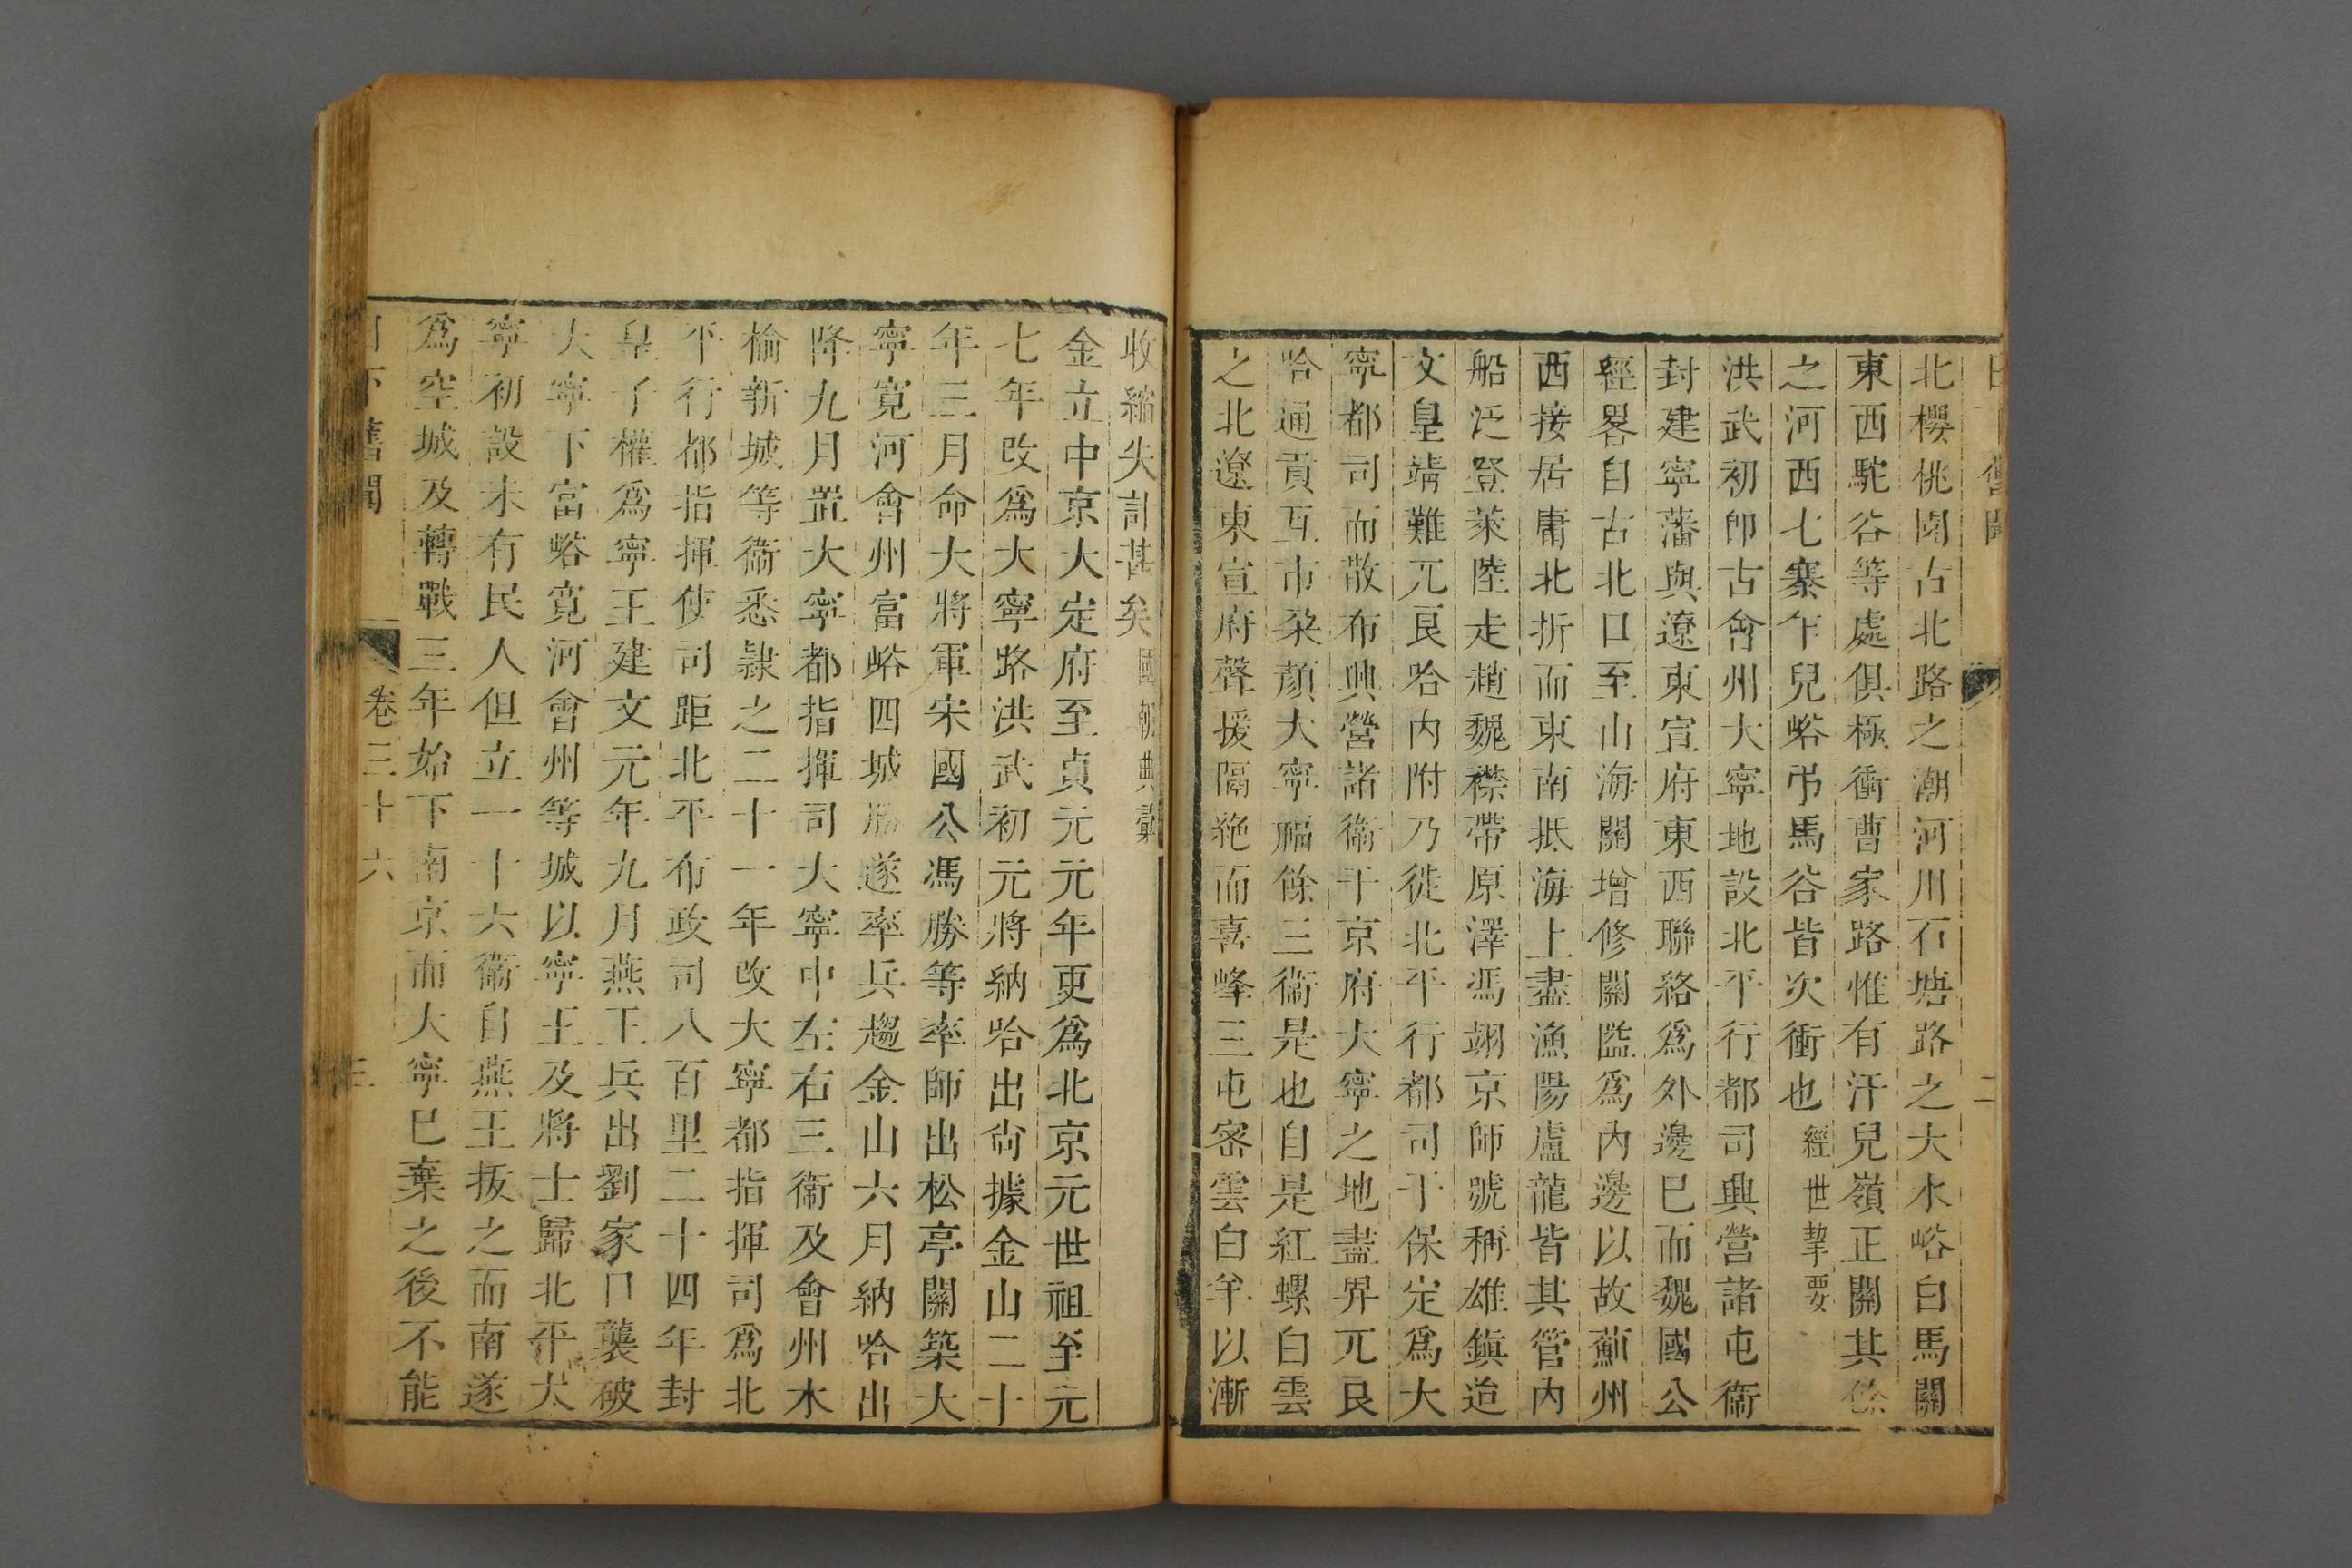 北櫻桃園古北路之潮河川石塘路之大水峪白馬關
東西駝谷等處俱極衝曹家路惟有汗兒嶺正關其餘
之河西七寨乍兒峪弔馬谷皆次衝也經世挈要
洪武初卽古會州大寧地設北平行都司興營諸屯衞
封建寧藩與遼東宣府東西聯絡爲外邊巳而魏國公
經畧自古北口至山海關增修關隘爲內邊以故薊州
西接居庸北折而東南抵海上盡漁陽盧龍皆其管內
船泛登萊陸走趙魏襟帶原澤馮翊京師號稱雄鎭迨
文皇靖難兀良哈內附乃徙北平行都司于保定爲大
寧都司而散布興營諸衞于京府大寧之地盡畀兀良
哈通貢互市朶顏大寧福餘三衞是也自是紅螺白雲
之北遼東宣府聲援隔絶而喜峰三屯密雲白羊以漸
收縮失計甚矣國朝典彙
金立中京大定府至貞元元年更爲北京元世祖至元
七年改爲大寧路洪武初元將納哈出尙據金山二十
年三月命大將軍宋國公馮勝等率師出松亭關築大
寧寛河會州富峪四城勝遂率兵趨金山六月納哈出
降九月置大寧都指揮司大寧中左右三衞及會州木
楡新城等衞悉隷之二十一年改大寧都指揮司爲北
平行都指揮使司距北平布政司八百里二十四年封
皇子權爲寧王建文元年九月燕王兵出劉家口襲破
大寧下富峪寛河會州等城以寧王及將士歸北平大
寧初設未有民人但立一十六衞自燕王拔之而南遂
爲空城及轉戰三年始下南京而大寧巳棄之後不能
日下舊聞 卷三十六 三